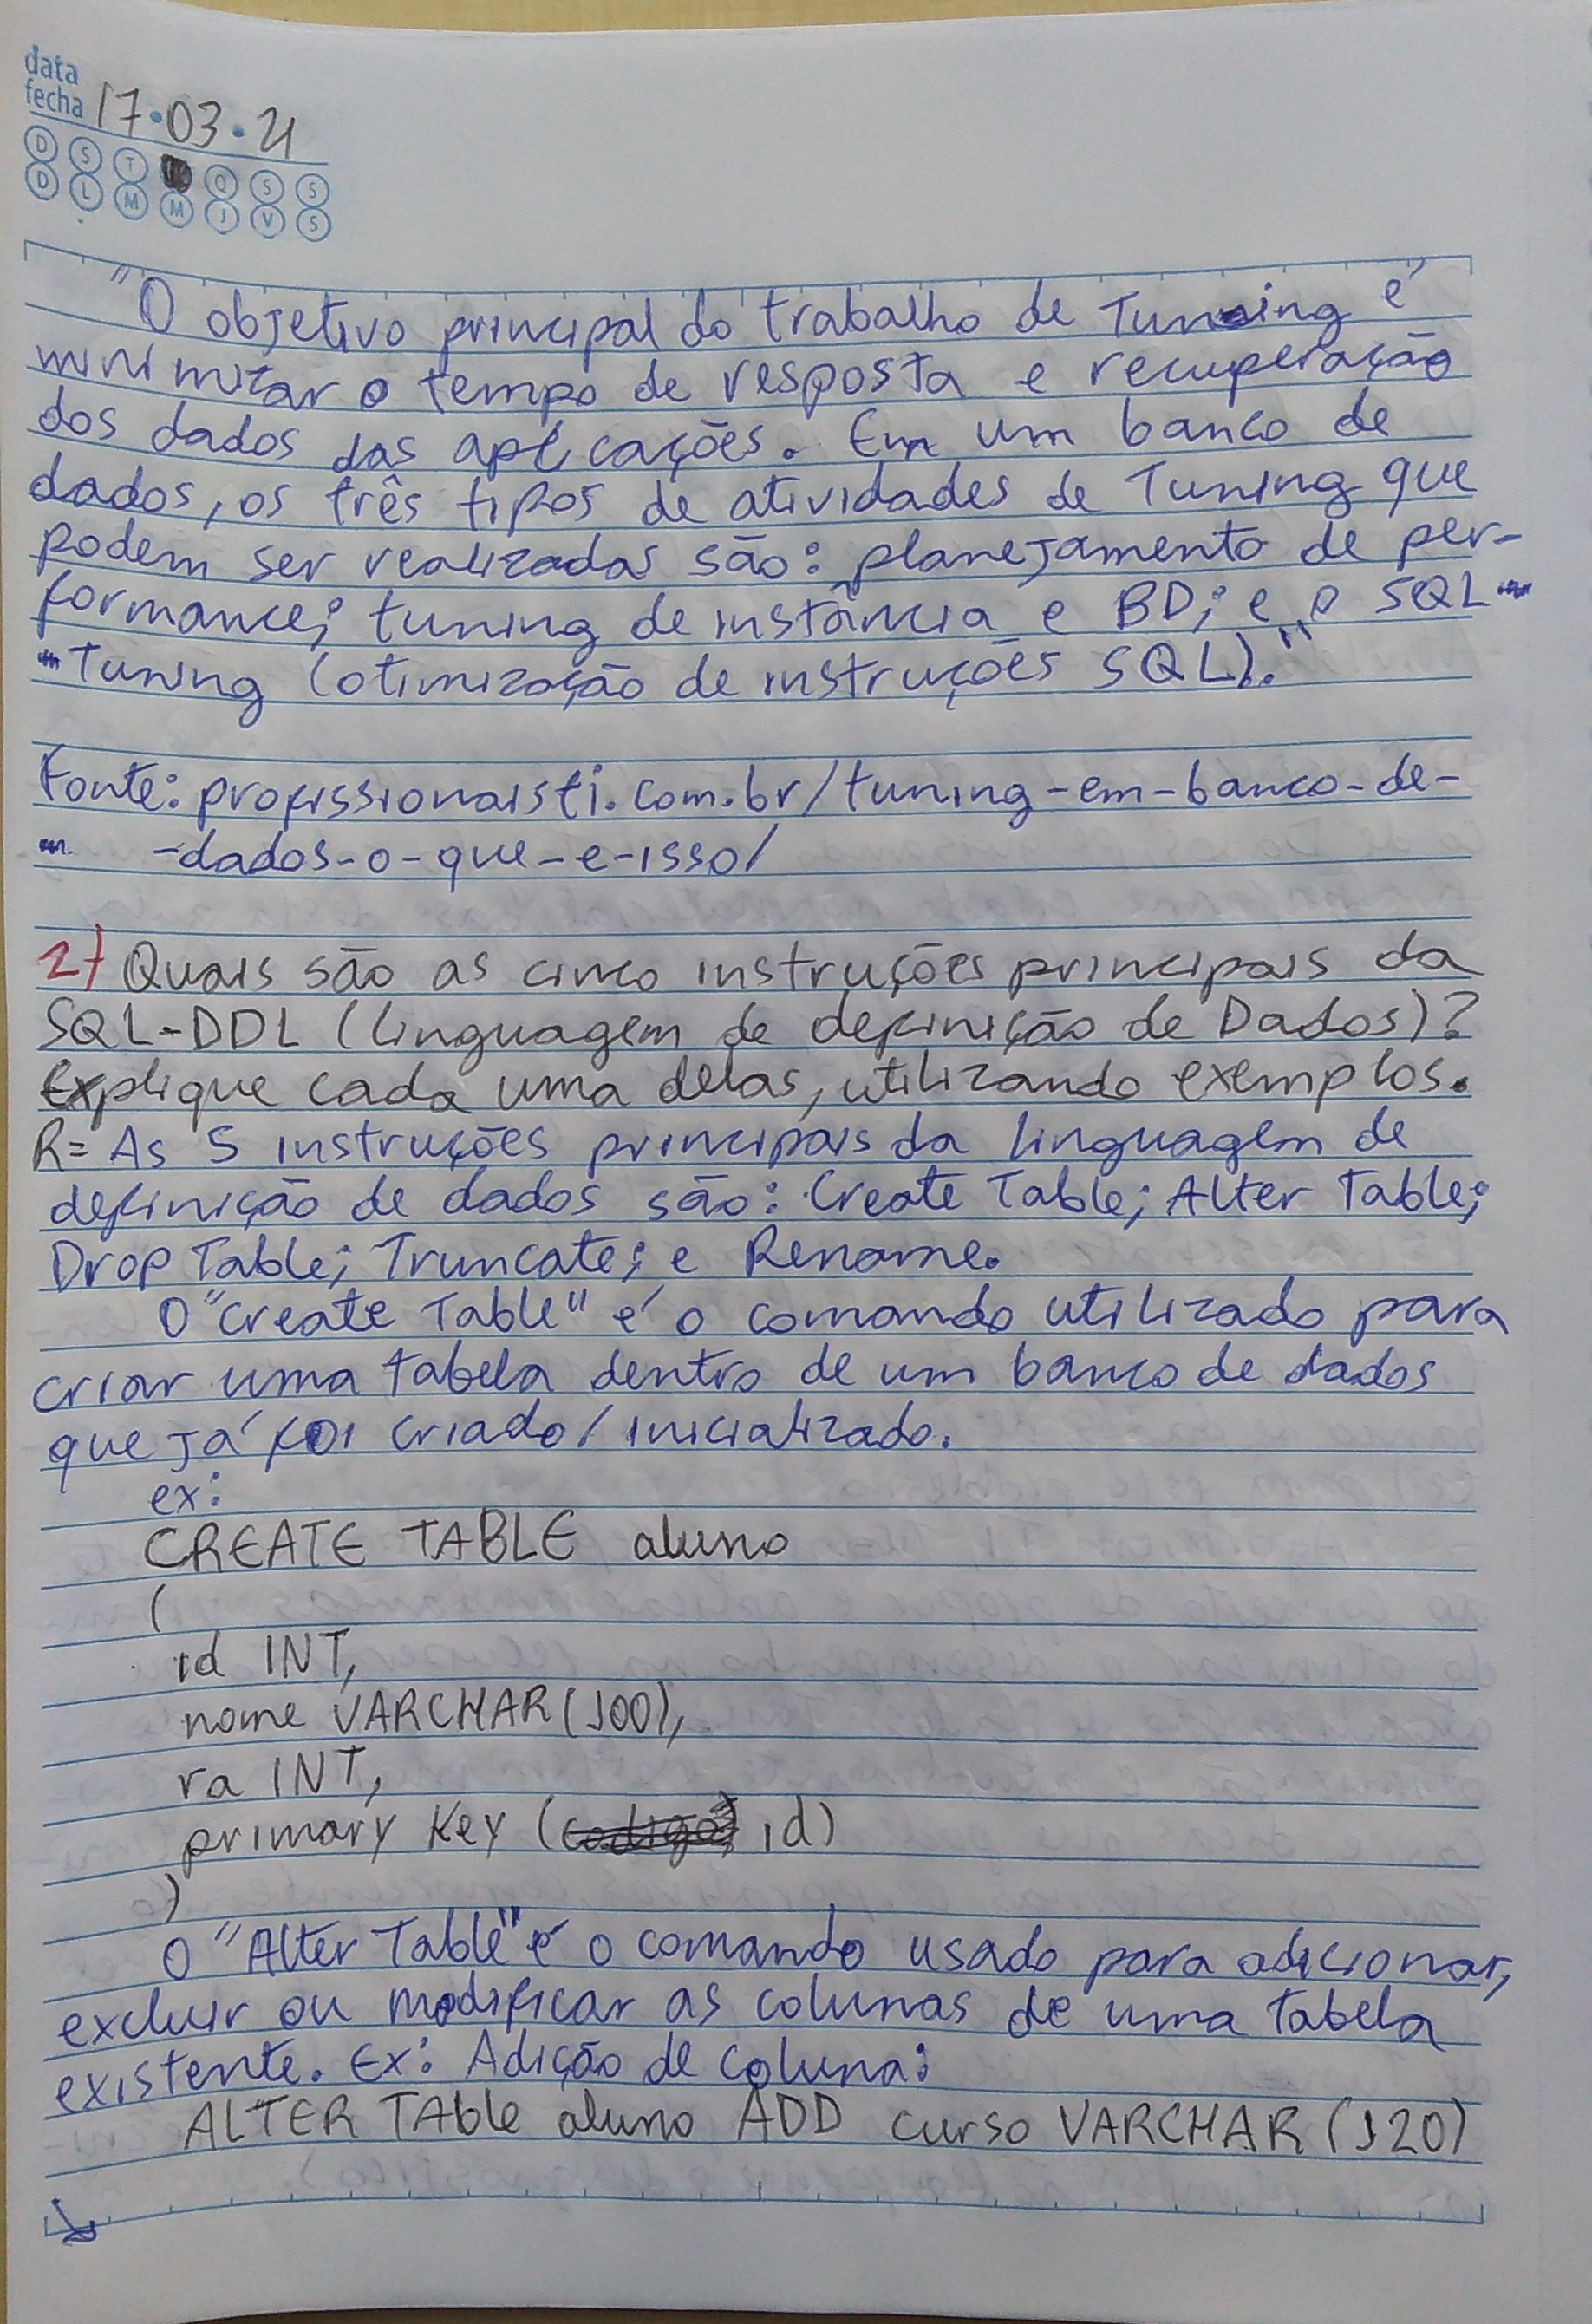 data
fecha 17·03·21
D S T Q S S
D L M M J V S
"O objetivo principal do trabalho de Tuning é
minimizar o tempo de resposta e recuperação
dos dados das aplicações. Em um banco de
dados, os três tipos de atividades de Tuning que
podem ser realizadas são: planejamento de per-
formance; tuning de instância e BD; e o SQL-
-Tuning (otimização de instruções SQL)."
Fonte: profissionaisti.com.br/tuning-em-banco-de-
-dados-o-que-e-isso/
2) Quais são as cinco instruções principais da
SQL-DDL (Linguagem de definição de Dados)?
Explique cada uma delas, utilizando exemplos.
R= As 5 instruções principais da linguagem de
definição de dados são: Create Table; Alter Table;
Drop Table; Truncate; e Rename.
O "Create Table" é o comando utilizado para
criar uma tabela dentro de um banco de dados
que já foi criado/inicializado.
ex:
CREATE TABLE aluno
(
id INT,
nome VARCHAR(100),
ra INT,
primary Key (id)
)
O "Alter Table" é o comando usado para adicionar,
excluir ou modificar as colunas de uma tabela
existente. Ex: Adição de coluna:
ALTER TAble aluno ADD curso VARCHAR (120)